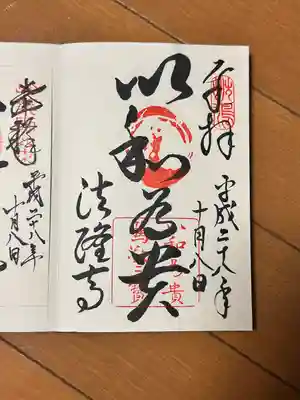 奉拝
平成二十八年
十月八日
以和為貴
法隆寺
奉拝
平成二十八年
十月八日